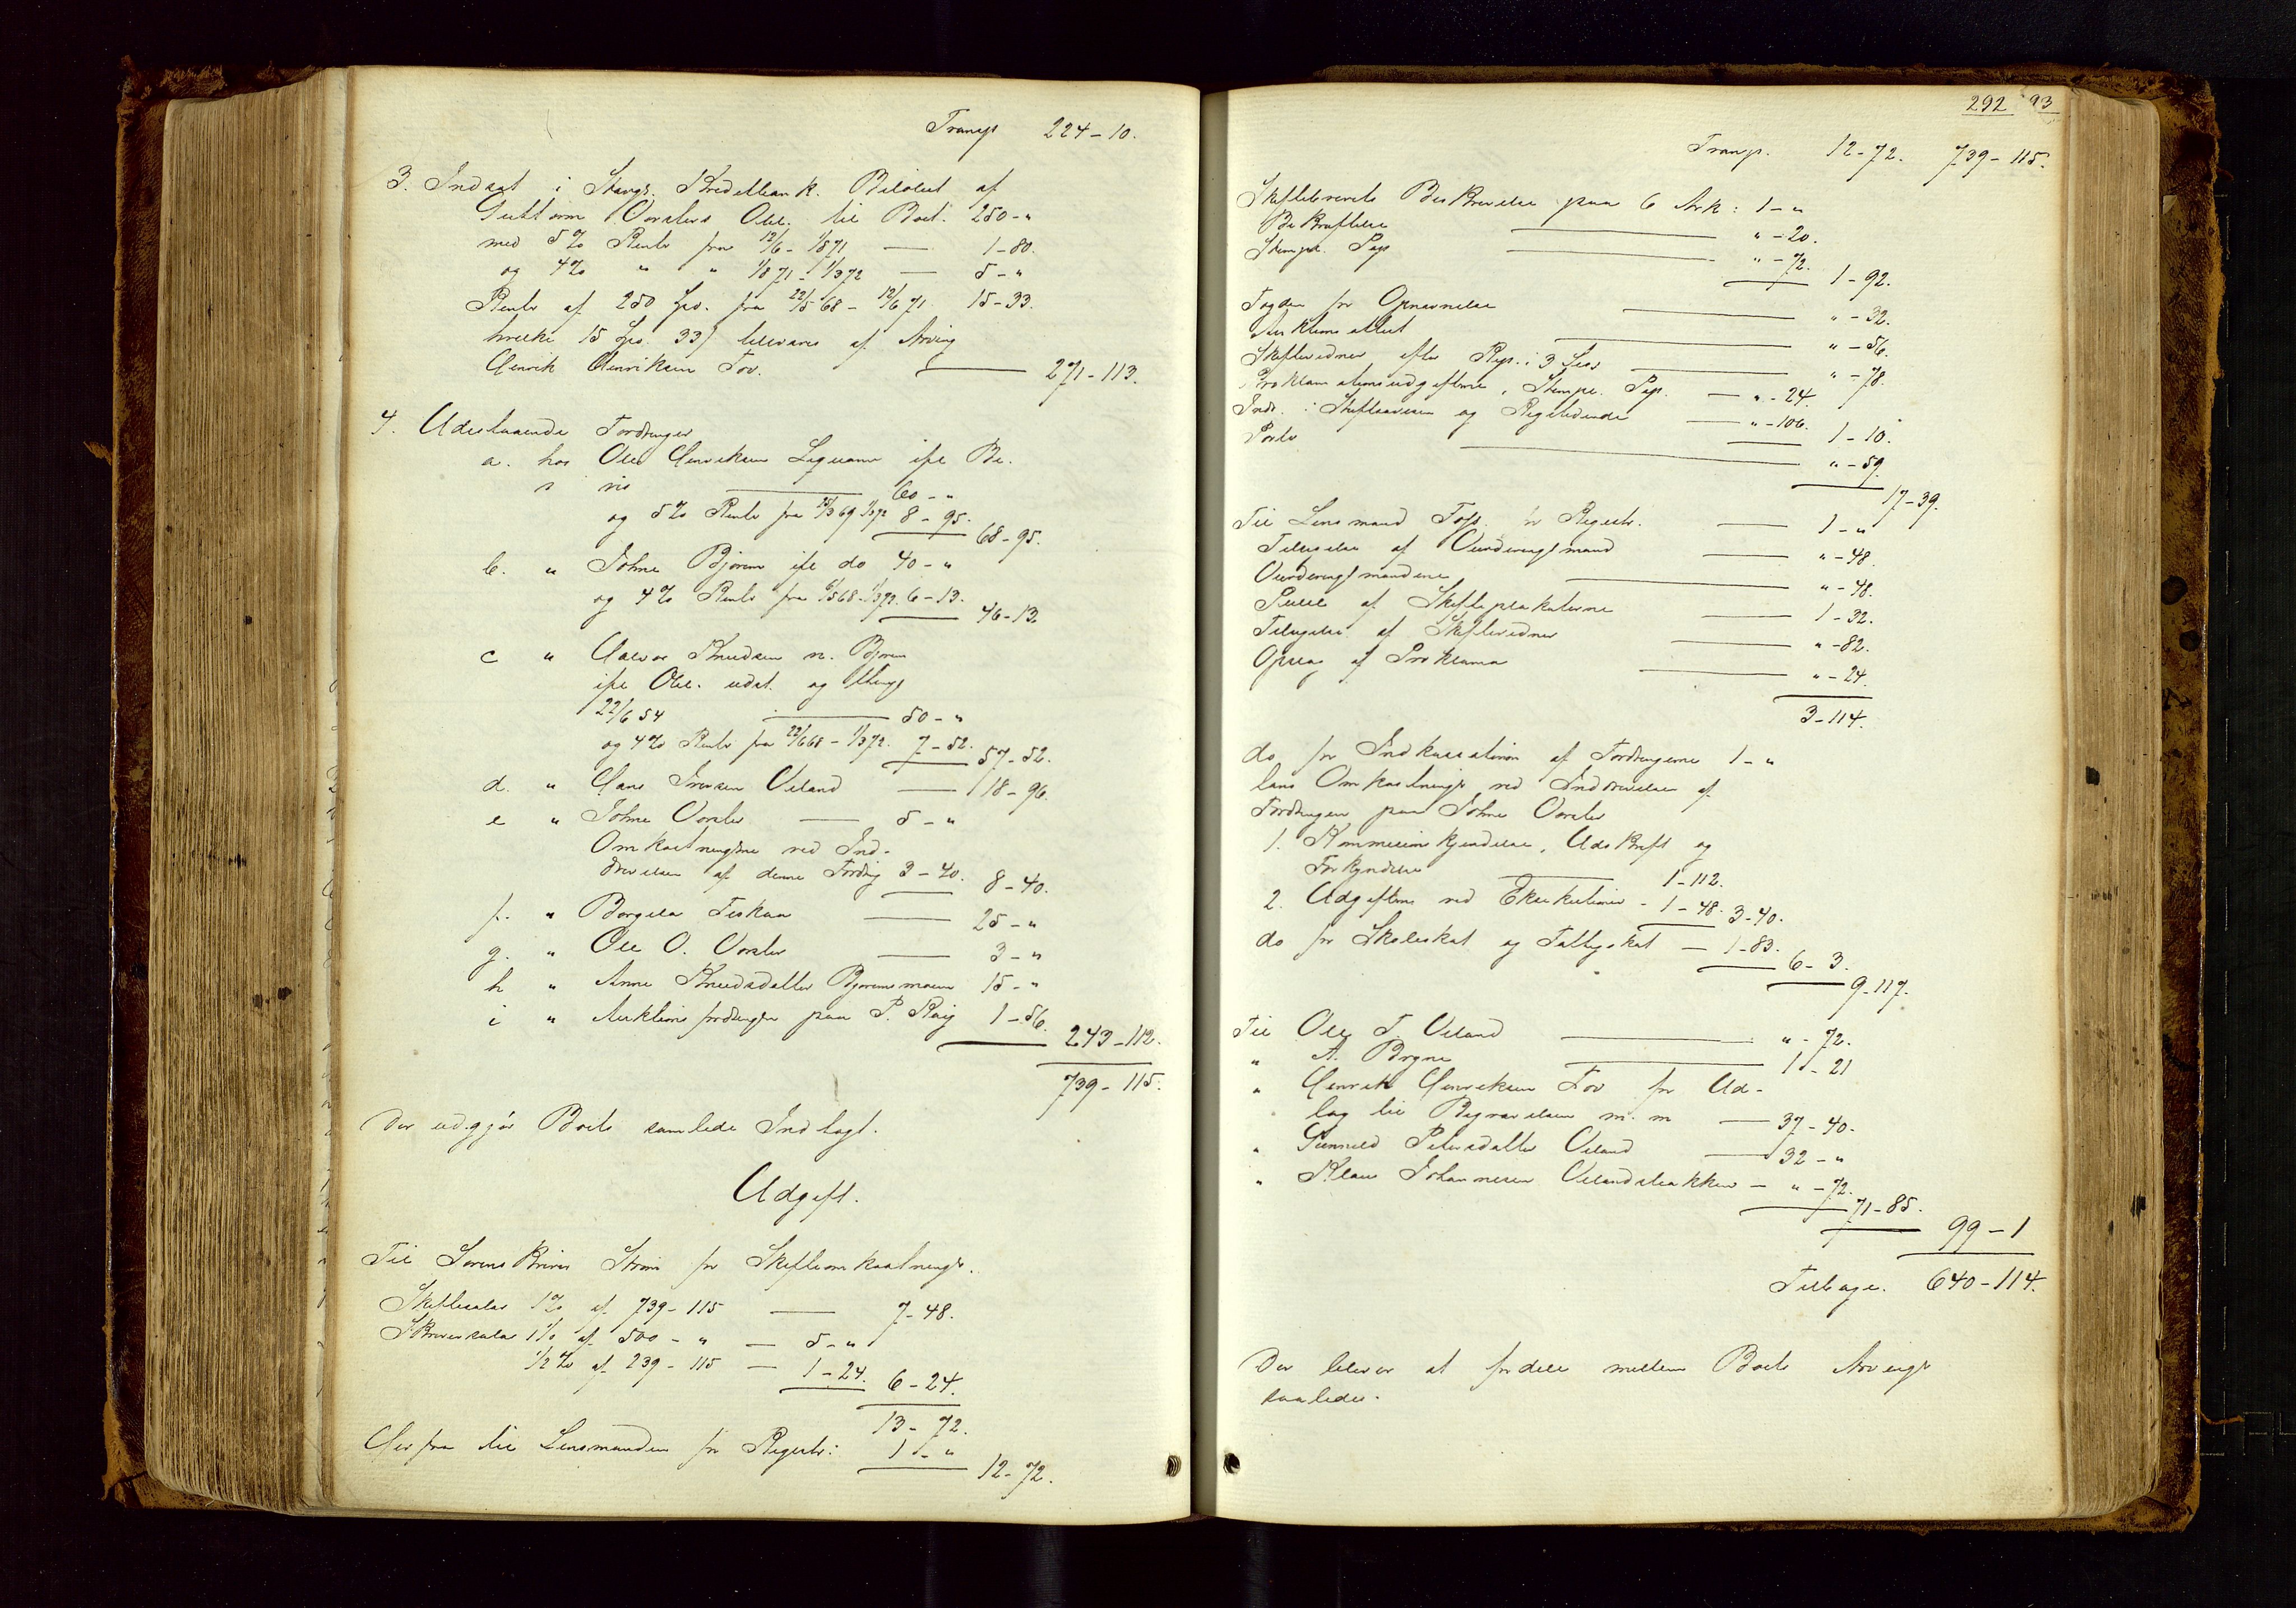 Transp 224-10.
3. Indsat i Stavgr. Kreditbank. Beløbet af
Guttorm Oorslevs Obl. til Boet. 250-"
med 5% Rente fra 12/6 - 1/8 71 — 1-80.
og 4% " " 1/8 71 - 1/3 72 — 5-"
Rente af 250 Spd. fra 22/5 68 - 12/6 71 15-33.
hvilke 15 Spd. 33 s tilsvares af Arving
Henrik Henriksen Tov. — 271-113.
4. Udestaaende Fordringer
a. hos Ole Henriksen ifl Be-
vis 60-"
og 5% Rente fra 15/3 69 1/3 72 8-95.
68-95.
b. " Johne Bjorem ifl do 40-"
og 4% Rente fra 6/5 68 - 1/3 72. 6-13.
46-13.
c " Halvor Knudsen n. Bjorem
ifl Obl. udst. og thingl
22/6 54 — 50-"
og 4% Rente fra 22/6 68 - 1/3 72. 7-52.
57-52.
d. " Hans Iversen Veland — 18-96.
e " Johne Oorslev — 5-"
Omkostningerne ved Ind-
drivelsen af denne Fordrg 3-40. 8-40.
f. " Borgila Tiskaa — 25-"
g. " Ole O. Oorslev — 3-"
h " Anne Knudsdatter Bjoremsmoen 15-"
i " Auktionsfordringer paa P. Roig 1-56.
243-112.
739-115.
Der udgjør Boets samlede Indtægt.
Udgift.
Til Sorenskriver Strøm for Skifteomkostninger.
Skiftesalær 1% af 739-115 — 7-48.
Skriversalær 1% af 500-" — 5-"
1/2% af 239-115 — 1-24. 6-24.
13-72.
Herfra til Lensmanden for Registr: 1-"
12-72.
292 93
Transp. 12-72. 739-115.
Skiftebrevets Beskrivelse paa 6 Ark: 1-"
Bekræftelse — "-20.
Stempl. Pap — "-72.
1-92.
Fogden for Opnævnelse — "-32.
Auktionsattest — "-56.
Skiftevidner efter Regn. i 3 Sess — "-78.
Proklamationsudgifterne, Stempl. Pap. — "-24.
Inds. i Skifteavisen og Rigstidende — "-106.
1-10.
Porto — "-59.
17-39.
Til Lensmand Toss. for Registr. — 1-"
Tilsigelse af Vurderingsmænd — "-48.
Vurderingsmændene — "-48.
Opslag af Skifteplakaterne — 1-32.
Tilsigelse af Skiftevidner — "-82.
Opslag af Proklama — "-24.
3-114.
do for Indkassation af Fordringerne 1-"
hans Omkostninger ved Inddrivelsen af
Fordringen paa Johne Oorslev
1. Kommissionskjendelse, Udskrift og
Forkyndelse — 1-112.
2. Udgifterne ved Eksekutionen - 1-48. 3-40.
do for Skoleskat og Fattigskat — 1-83.
6-3.
9-117.
Til Ole T. Veland — "-72.
" A. Bryne — 1-21
" Henrik Henriksen Tov for Ud-
læg til Begravelsen m. m — 37-40.
" Gunnild Petersdatter Veland — 32-"
" Klaus Johannesen Velandsbakken - "-72.
71-85.
99-1
Tilbage. 640-114.
Der bliver at fordele mellem Boets Arvinger
saaledes.